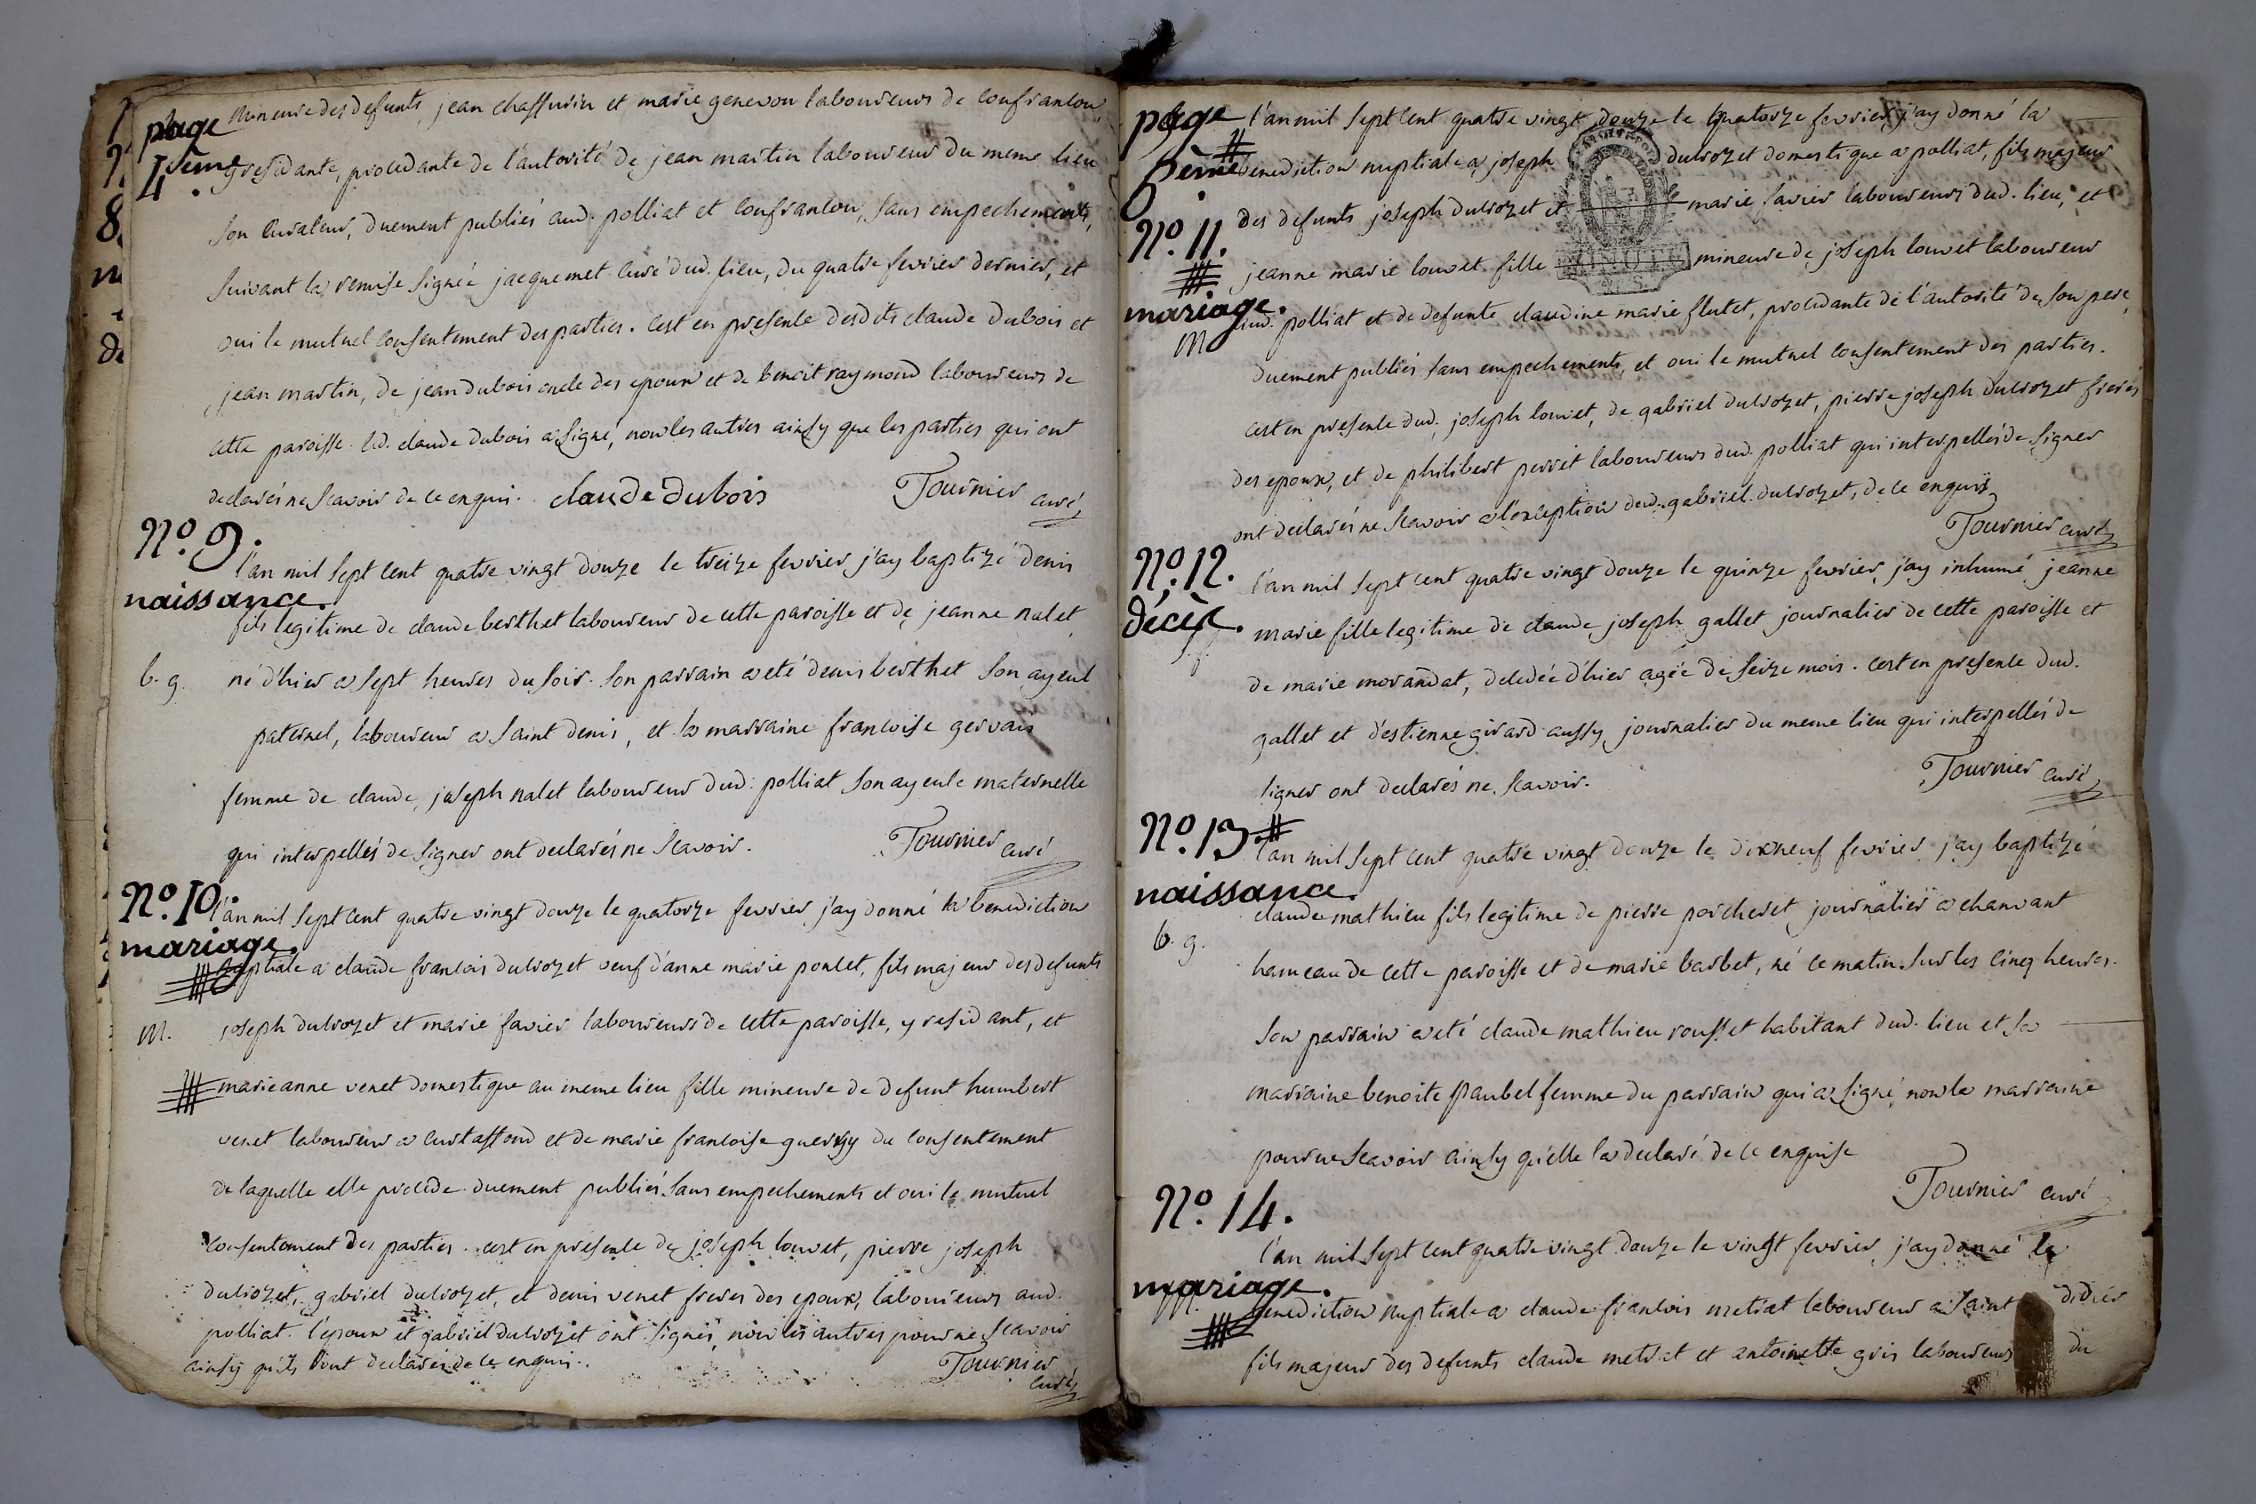 page
4ème
mineure des defunts jean chaffurin et marie genevou laboureurs de confrancon,
y residante, procedante de l'autorité de jean martin laboureur du meme lieu
son curateur, duement publiés aud. polliat et confrancon, sans empechements,
suivant la remise signée jacquemet curé dud. lieu, du quatre fevrier dernier, et
oui le mutuel consentement des parties. cest en presence desdits claude dubois et
jean martin, de jean dubois oncle des epoux et de benoit raymond laboureurs de
cette paroisse. led. claude dubois a signé, non les autres ainsy que les parties qui ont
declarés ne scavoir de ce enquis. claude dubois Tournier curé
No. 9.
naissance.
b. g.
l'an mil sept cent quatre vingt douze le treize fevrier j'ay baptizé denis
fils legitime de claude berthet laboureur de cette paroisse et de jeanne nalet,
né d'hier a sept heures du soir. son parrain a eté denis berthet son ayeul
paternel, laboureur a saint denis, et la marraine francoise gervais
femme de claude joseph nalet laboureur dud. polliat son ayeule maternelle
qui interpellés de signer ont declarés ne scavoir. Tournier curé
No. 10.
mariage.
m.
l'an mil sept cent quatre vingt douze le quatorze fevrier j'ay donné la benediction
nuptiale a claude francois duvozet veuf d'anne marie poncet, fils majeur des defunts
joseph duvozet et marie favier laboureurs de cette paroisse, y residant, et
marieanne venet domestique au meme lieu fille mineure de defunt humbert
venet laboureur a curtaffond et de marie francoise du consentement
de laquelle elle procede. duement publiés sans empechements et oui le mutuel
consentement des parties. cest en presence de joseph louvet, pierre joseph
duvozet, gabriel duvozet, et denis venet freres des epoux, laboureurs aud.
polliat. l'epoux et gabriel duvozet ont signés, non les autres pour ne scavoir
ainsy qu'ils l'ont declarés de ce enquis. Tournier
curé
page
5ème
No. 11.
mariage.
m
l'an mil sept cent quatre vingt douze le quatorze fevrier j'ay donné la
benediction nuptiale a joseph duvozet domestique a polliat, fils majeur
des defunts joseph duvozet et marie favier laboureurs dud. lieu, et
jeanne marie louvet fille mineure de joseph louvet laboureur
aud. polliat et de defunte claudine marie flutet, procedante de l'autorité de son pere,
duement publiés sans empechements, et oui le mutuel consentement des parties.
cest en presence dud. joseph louvet, de gabriel duvozet, pierre joseph duvozet freres
des epoux, et de philibert perret laboureurs dud. polliat qui interpellés de signer
ont declarés ne scavoir a l'exception dud. gabriel duvozet, de ce enquis
Tournier curé
No. 12.
décès.
l'an mil sept cent quatre vingt douze le quinze fevrier, j'ay inhumé jeanne
marie fille legitime de claude joseph gallet journalier de cette paroisse et
de marie morandat, decedée d'hier agée de seize mois. cest en presence dud.
gallet et d'estienne girard aussy journalier du meme lieu qui interpellés de
signer ont declarés ne scavoir. Tournier curé
No. 13
naissance.
b. g.
l'an mil sept cent quatre vingt douze le dixneuf fevrier j'ay baptizé
claude mathieu fils legitime de pierre porcheret journalier a chanvant
hameau de cette paroisse et de marie barbet, né ce matin sur les cinq heures.
son parrain a eté claude mathieu rousset habitant dud. lieu et sa
marraine benoite paubel femme du parrain qui a signé, non la marraine
pour ne scavoir ainsy qu'elle l'a declaré de ce enquise
Tournier curé
No. 14.
mariage.
l'an mil sept cent quatre vingt douze le vingt fevrier, j'ay donné la
benediction nuptiale a claude francois metrat laboureur a saint didier
fils majeur des defunts claude metrat et antoinette gris laboureurs du